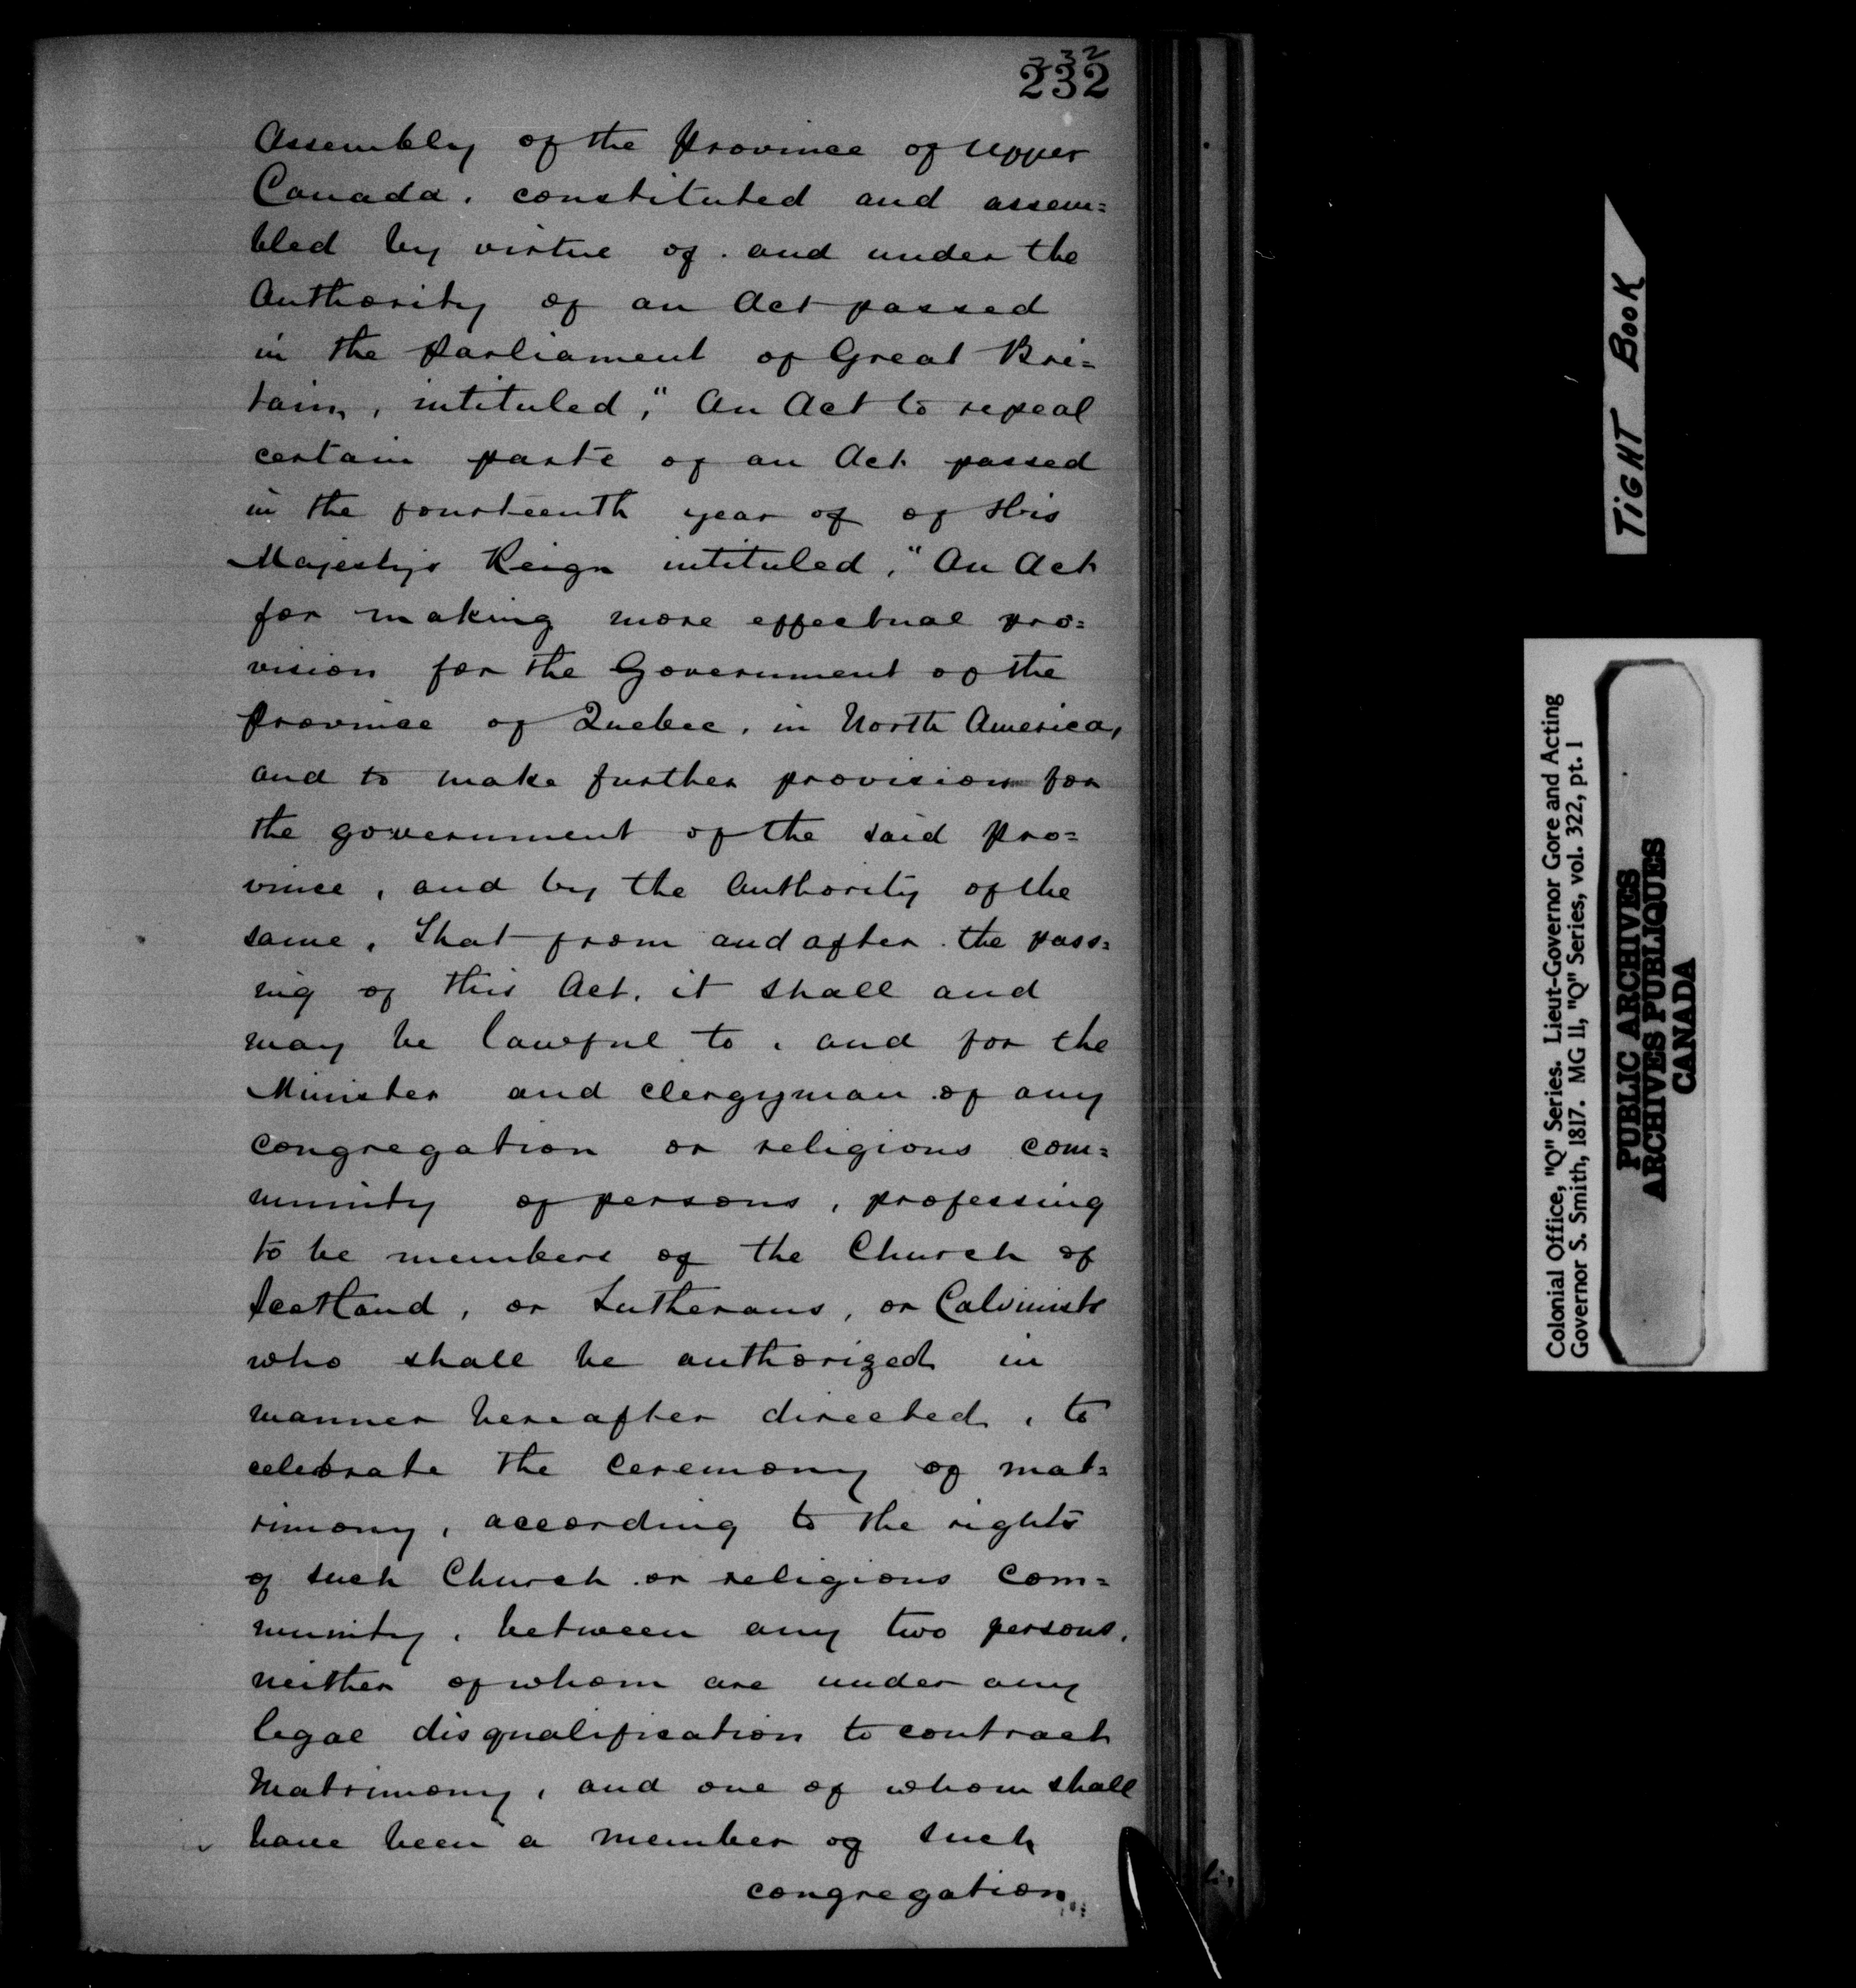 232
232
Assembly of the Province of Upper
Canada, constituted and assem=
bled by virtue of, and under the
Authority of an Act passed
in the Parliament of Great Bri=
tain, intituled, "An Act to repeal
certain parts of an Act passed
in the fourteenth year of of His
Majesty's Reign intituled, "An Act
for making more effectual pro=
vision for the Government of the
Province of Quebec, in North America,
and to make further provision for
the government of the said Pro=
vince, and by the Authority of the
same, That from and after the pass=
ing of this Act, it shall and
may be lawful to, and for the
Minister and Clergyman of any
congregation or religious com=
munity of persons, professing
to be members of the Church of
Scotland, or Lutherans, or Calvinists
who shall be authorized in
manner hereafter directed, to
celebrate the Ceremony of mat=
rimony, according to the rights
of such Church or religious Com=
munity, between any two persons,
neither of whom are under any
legal disqualification to contract
Matrimony, and one of whom shall
have been a member of such
congregation
TIGHT BOOK
Colonial Office, "Q" Series. Lieut-Governor Gore and Acting
Governor S. Smith, 1817. MG 11, "Q" Series, vol. 322, pt. 1
PUBLIC ARCHIVES
ARCHIVES PUBLIQUES
CANADA